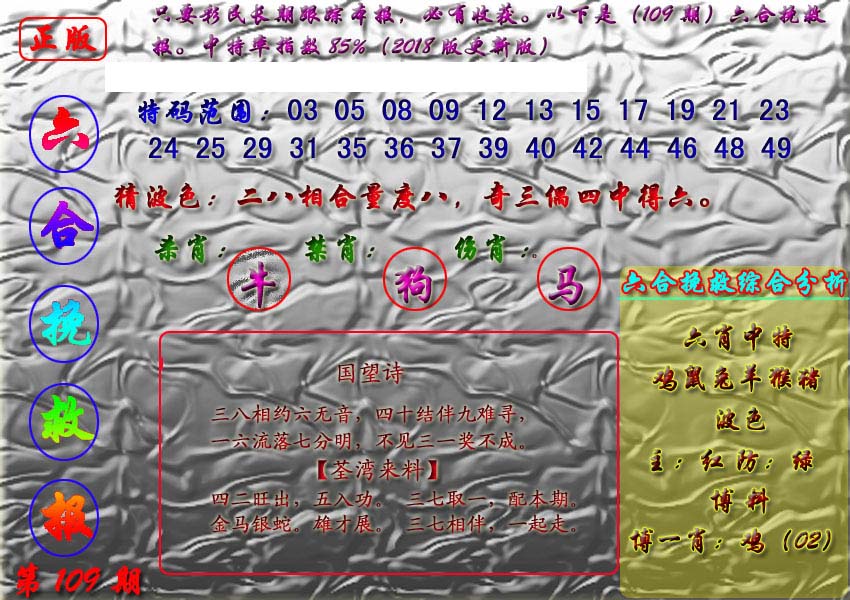 正版
只要彩民长期跟踪本报，必有收获。以下是（109期）六合挽救
报。中特率指数85%（2018版更新版）
六合挽救报
第109期
特码范围：03 05 08 09 12 13 15 17 19 21 23
24 25 29 31 35 36 37 39 40 42 44 46 48 49
猜波色：二八相合量度八，奇三偶四中得六。
杀肖：牛 禁肖：狗 伤肖：。马
国望诗
三八相约六无音，四十结伴九难寻，
一六流落七分明，不见三一奖不成。
【荃湾来料】
四二旺出，五入功。 三七取一，配本期。
金马银蛇。雄才展。 三七相伴，一起走。
六合挽救综合分析
六肖中特
鸡鼠兔羊猴猪
波色
主：红防：绿
博料
博一肖：鸡（02）